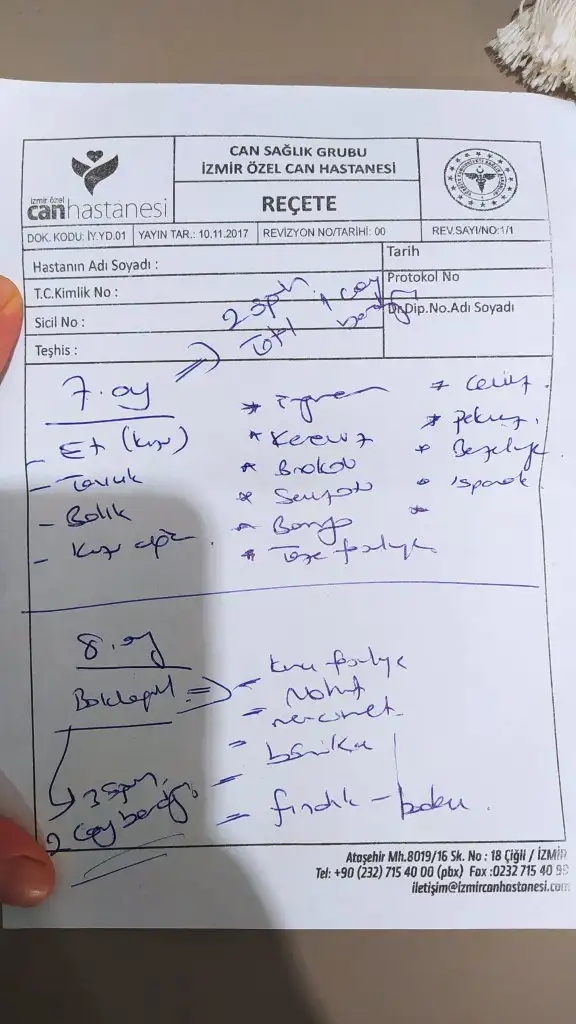 CAN SAĞLIK GRUBU
İZMİR ÖZEL CAN HASTANESİ
izmir özel
canhastanesi
REÇETE
DOK. KODU: İY.YD.01 YAYIN TAR.: 10.11.2017 REVİZYON NO/TARİHİ: 00 REV.SAYI/NO:1/1
Hastanın Adı Soyadı :
Tarih
T.C.Kimlik No :
Protokol No
Sicil No :
Dr.Dip.No.Adı Soyadı
Teşhis :
2 öğün 1 çay
bardağı
7. ay
- Et (kuzu)
- Tavuk
- Balık
* Kereviz
* Brokoli
* Bamya
* Taze fasulye
* Ceviz.
* Pekmez.
* Bezelye
* Ispanak
8. ay
Baklagil =>
- Kuru fasulye
- Nohut
- mercimek
- fındık - badem.
2 çay bardağı
Ataşehir Mh.8019/16 Sk. No : 18 Çiğli / İZMİR
Tel: +90 (232) 715 40 00 (pbx) Fax :0232 715 40 99
iletişim@izmircanhastanesi.com